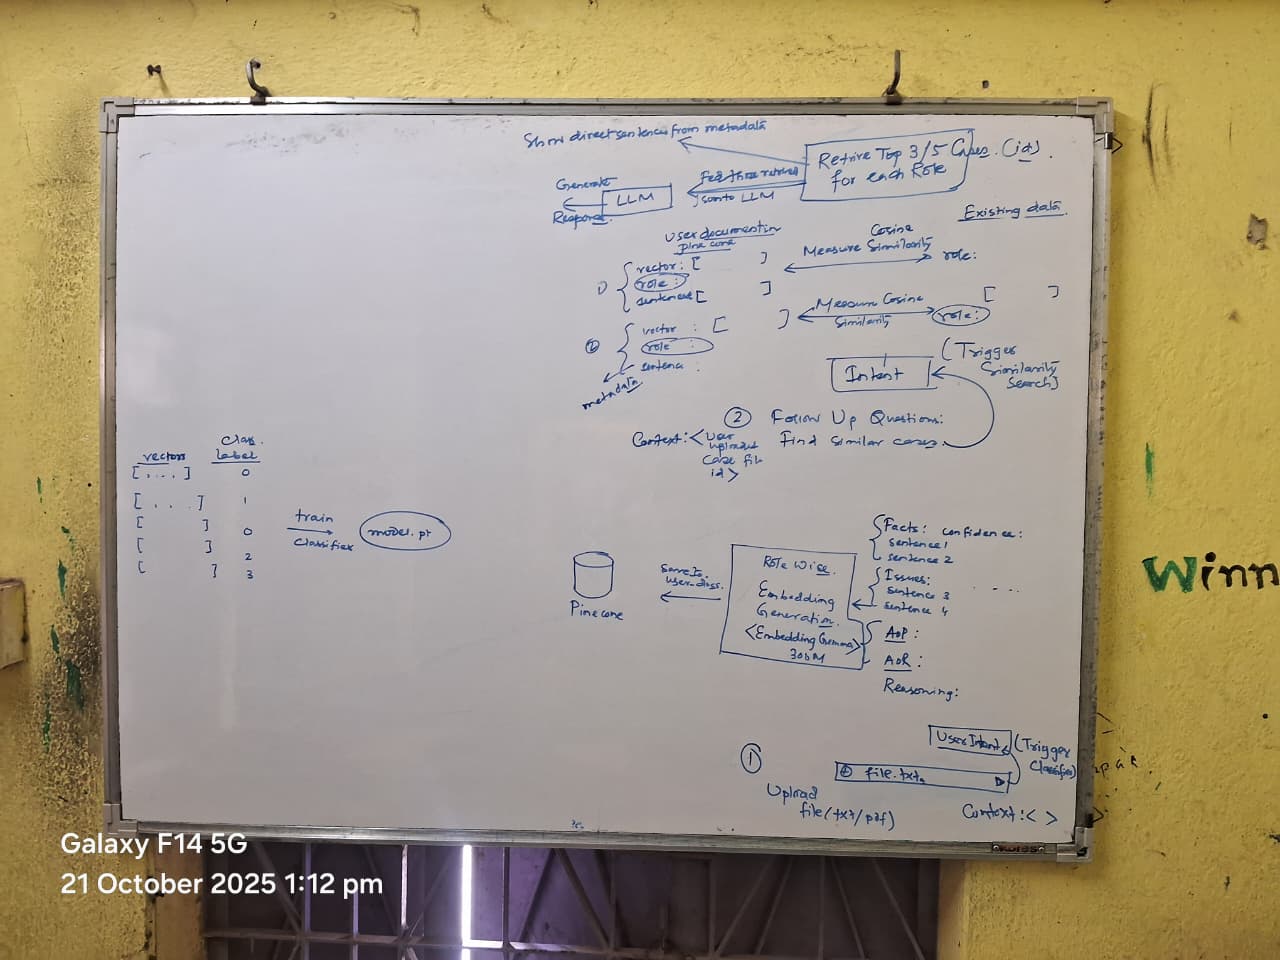 Show direct sentences from metadata
Retrive Top 3/5 Cases. (id).
for each Role
Feed those retrived
json to LLM
LLM
Generate
Response
Existing data.
User document in
pine cone
1) { vector: [ ]
role :
sentences [ ]
Cosine
Measure Similarity
role:
2 { vector : [ ]
role :
sentence :
metadata
Measure Cosine
Similarity
[ ]
role:
Intent
(Trigger
Similarity
Search)
2 Follow Up Questions:
Find similar cases.
Context: <User
uploaded
case file
id>
vectors
class
label
[....] 0
[....] 1
[ ] 0
[ ] 2
[ ] 3
train
classifier
model.pt
Pinecone
Save to
user_docs.
Role Wise
Embedding
Generation.
<Embedding Gemma>
300M
{ Facts: confidence:
sentence 1
sentence 2
{ Issues:
sentence 3
sentence 4
AoP :
AoR :
Reasoning:
1
Upload
file (txt/pdf)
User Intent
(Trigger
Classifier)
file.txt
Context: < >
Winn
KORES
Galaxy F14 5G
21 October 2025 1:12 pm